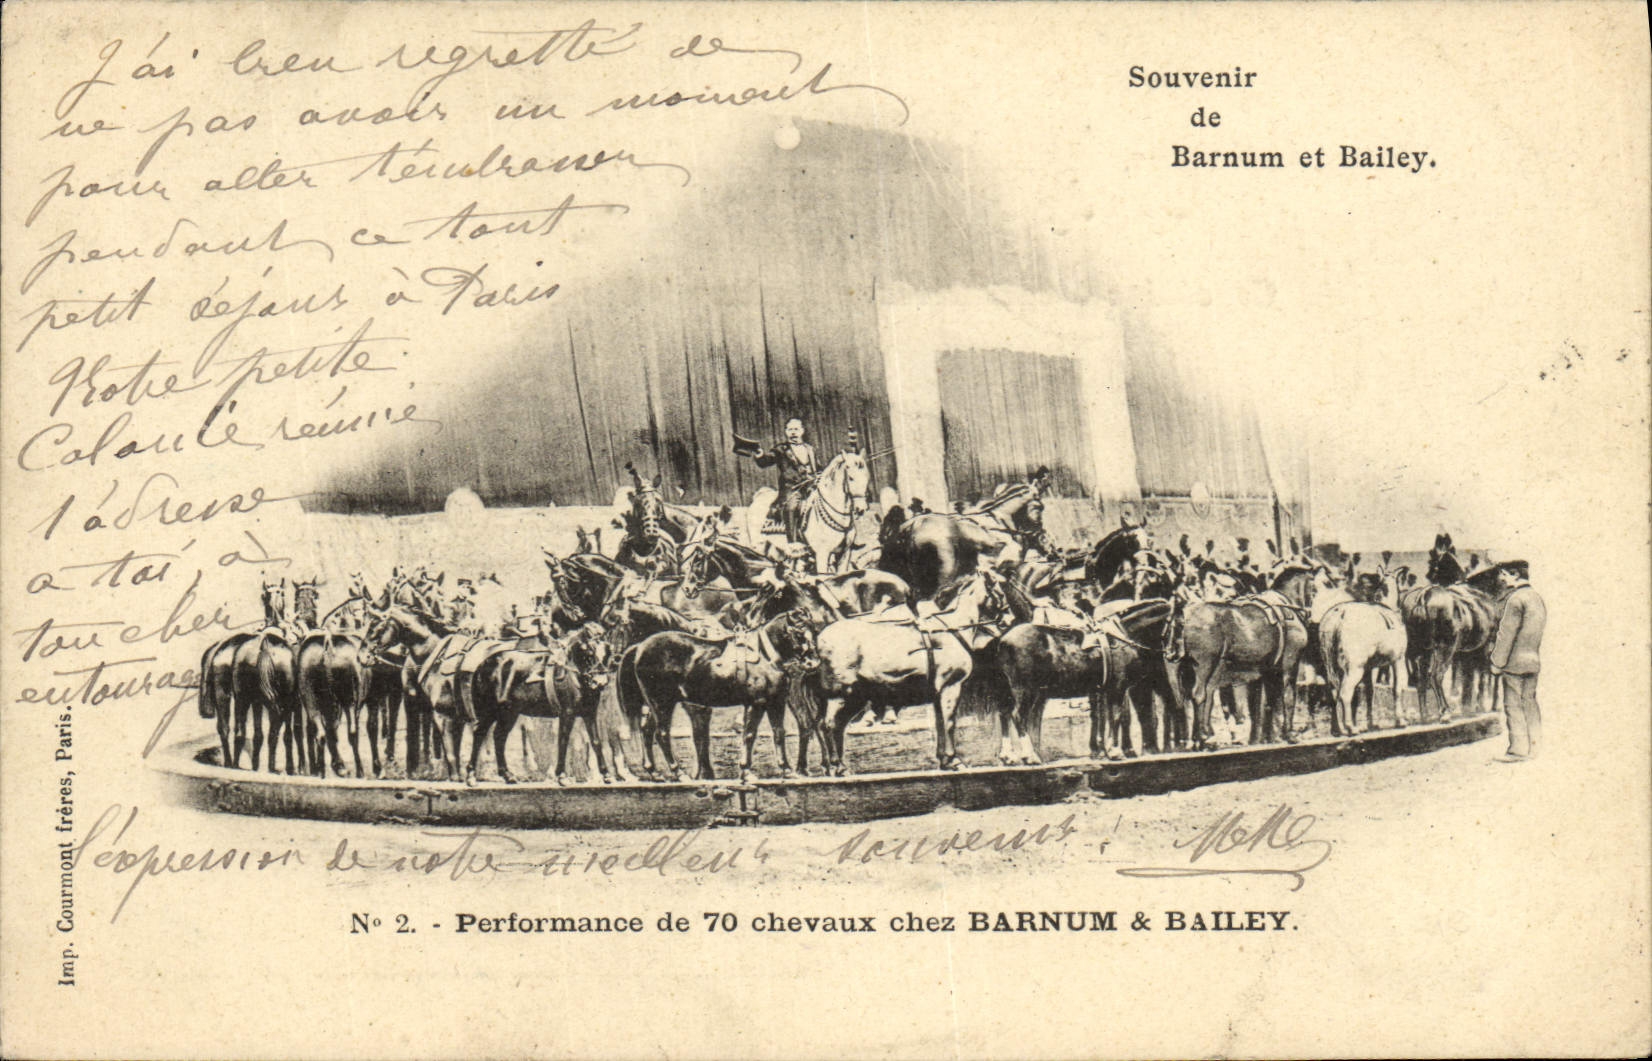 J'ai bien regretté de
ne pas avoir un moment
pour aller t'embrasser
pendant ce tout
petit séjour à Paris
Notre petite
Colonie réunie
t'adresse
a toi, à
ton cher
entourage
l'expression de notre meilleur souvenir !
Souvenir
de
Barnum et Bailey.
Nº 2. - Performance de 70 chevaux chez BARNUM & BAILEY.
Imp. Courmont frères, Paris.